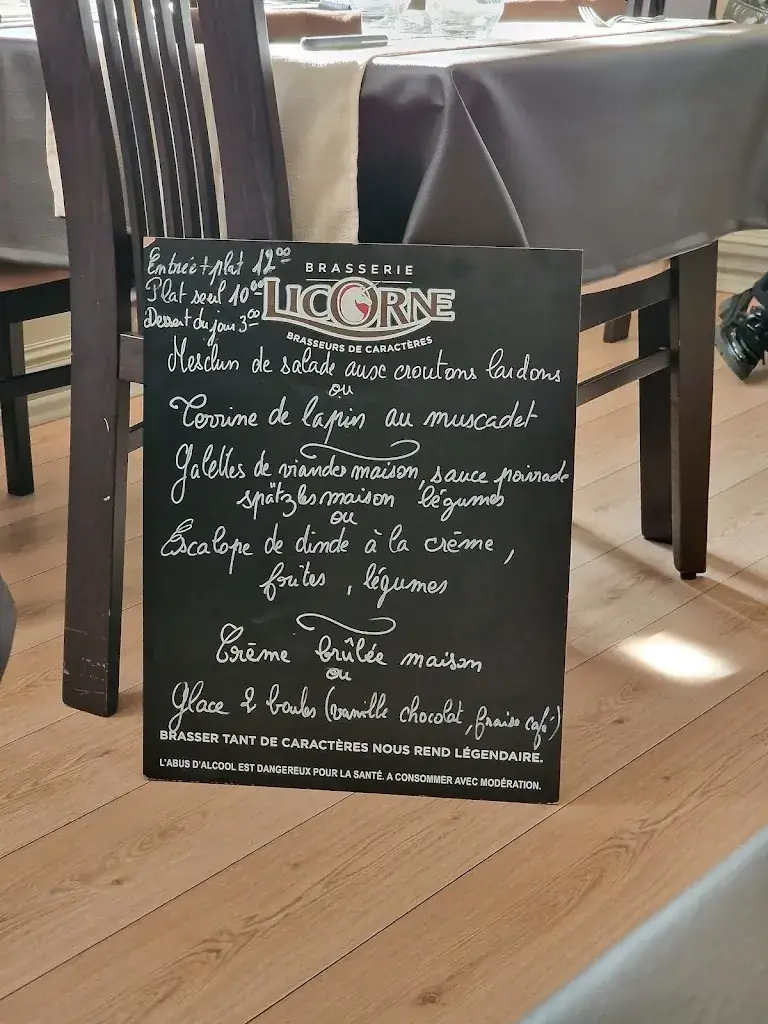 Entrée + plat 12⁰⁰
Plat seul 10⁰⁰
Dessert du jour 3⁰⁰
BRASSERIE
LICORNE
BRASSEURS DE CARACTÈRES
Mesclun de salade aux croutons lardons
ou
Terrine de lapin au muscadet
Galettes de viandes maison, sauce poivrade
spätzles maison légumes
ou
Escalope de dinde à la crème,
frites, légumes
Crème brûlée maison
ou
Glace 2 boules (vanille chocolat, fraise café)
BRASSER TANT DE CARACTÈRES NOUS REND LÉGENDAIRE.
L'ABUS D'ALCOOL EST DANGEREUX POUR LA SANTÉ. A CONSOMMER AVEC MODÉRATION.